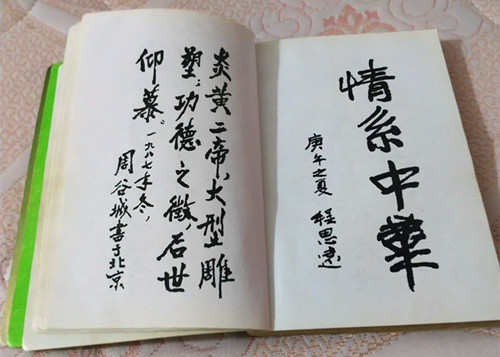 炎黄二帝,大型雕
塑:功德之徵,后世
仰慕。一九八七年冬,
周谷城書于北京
情系中華
庚午之夏 程思遠